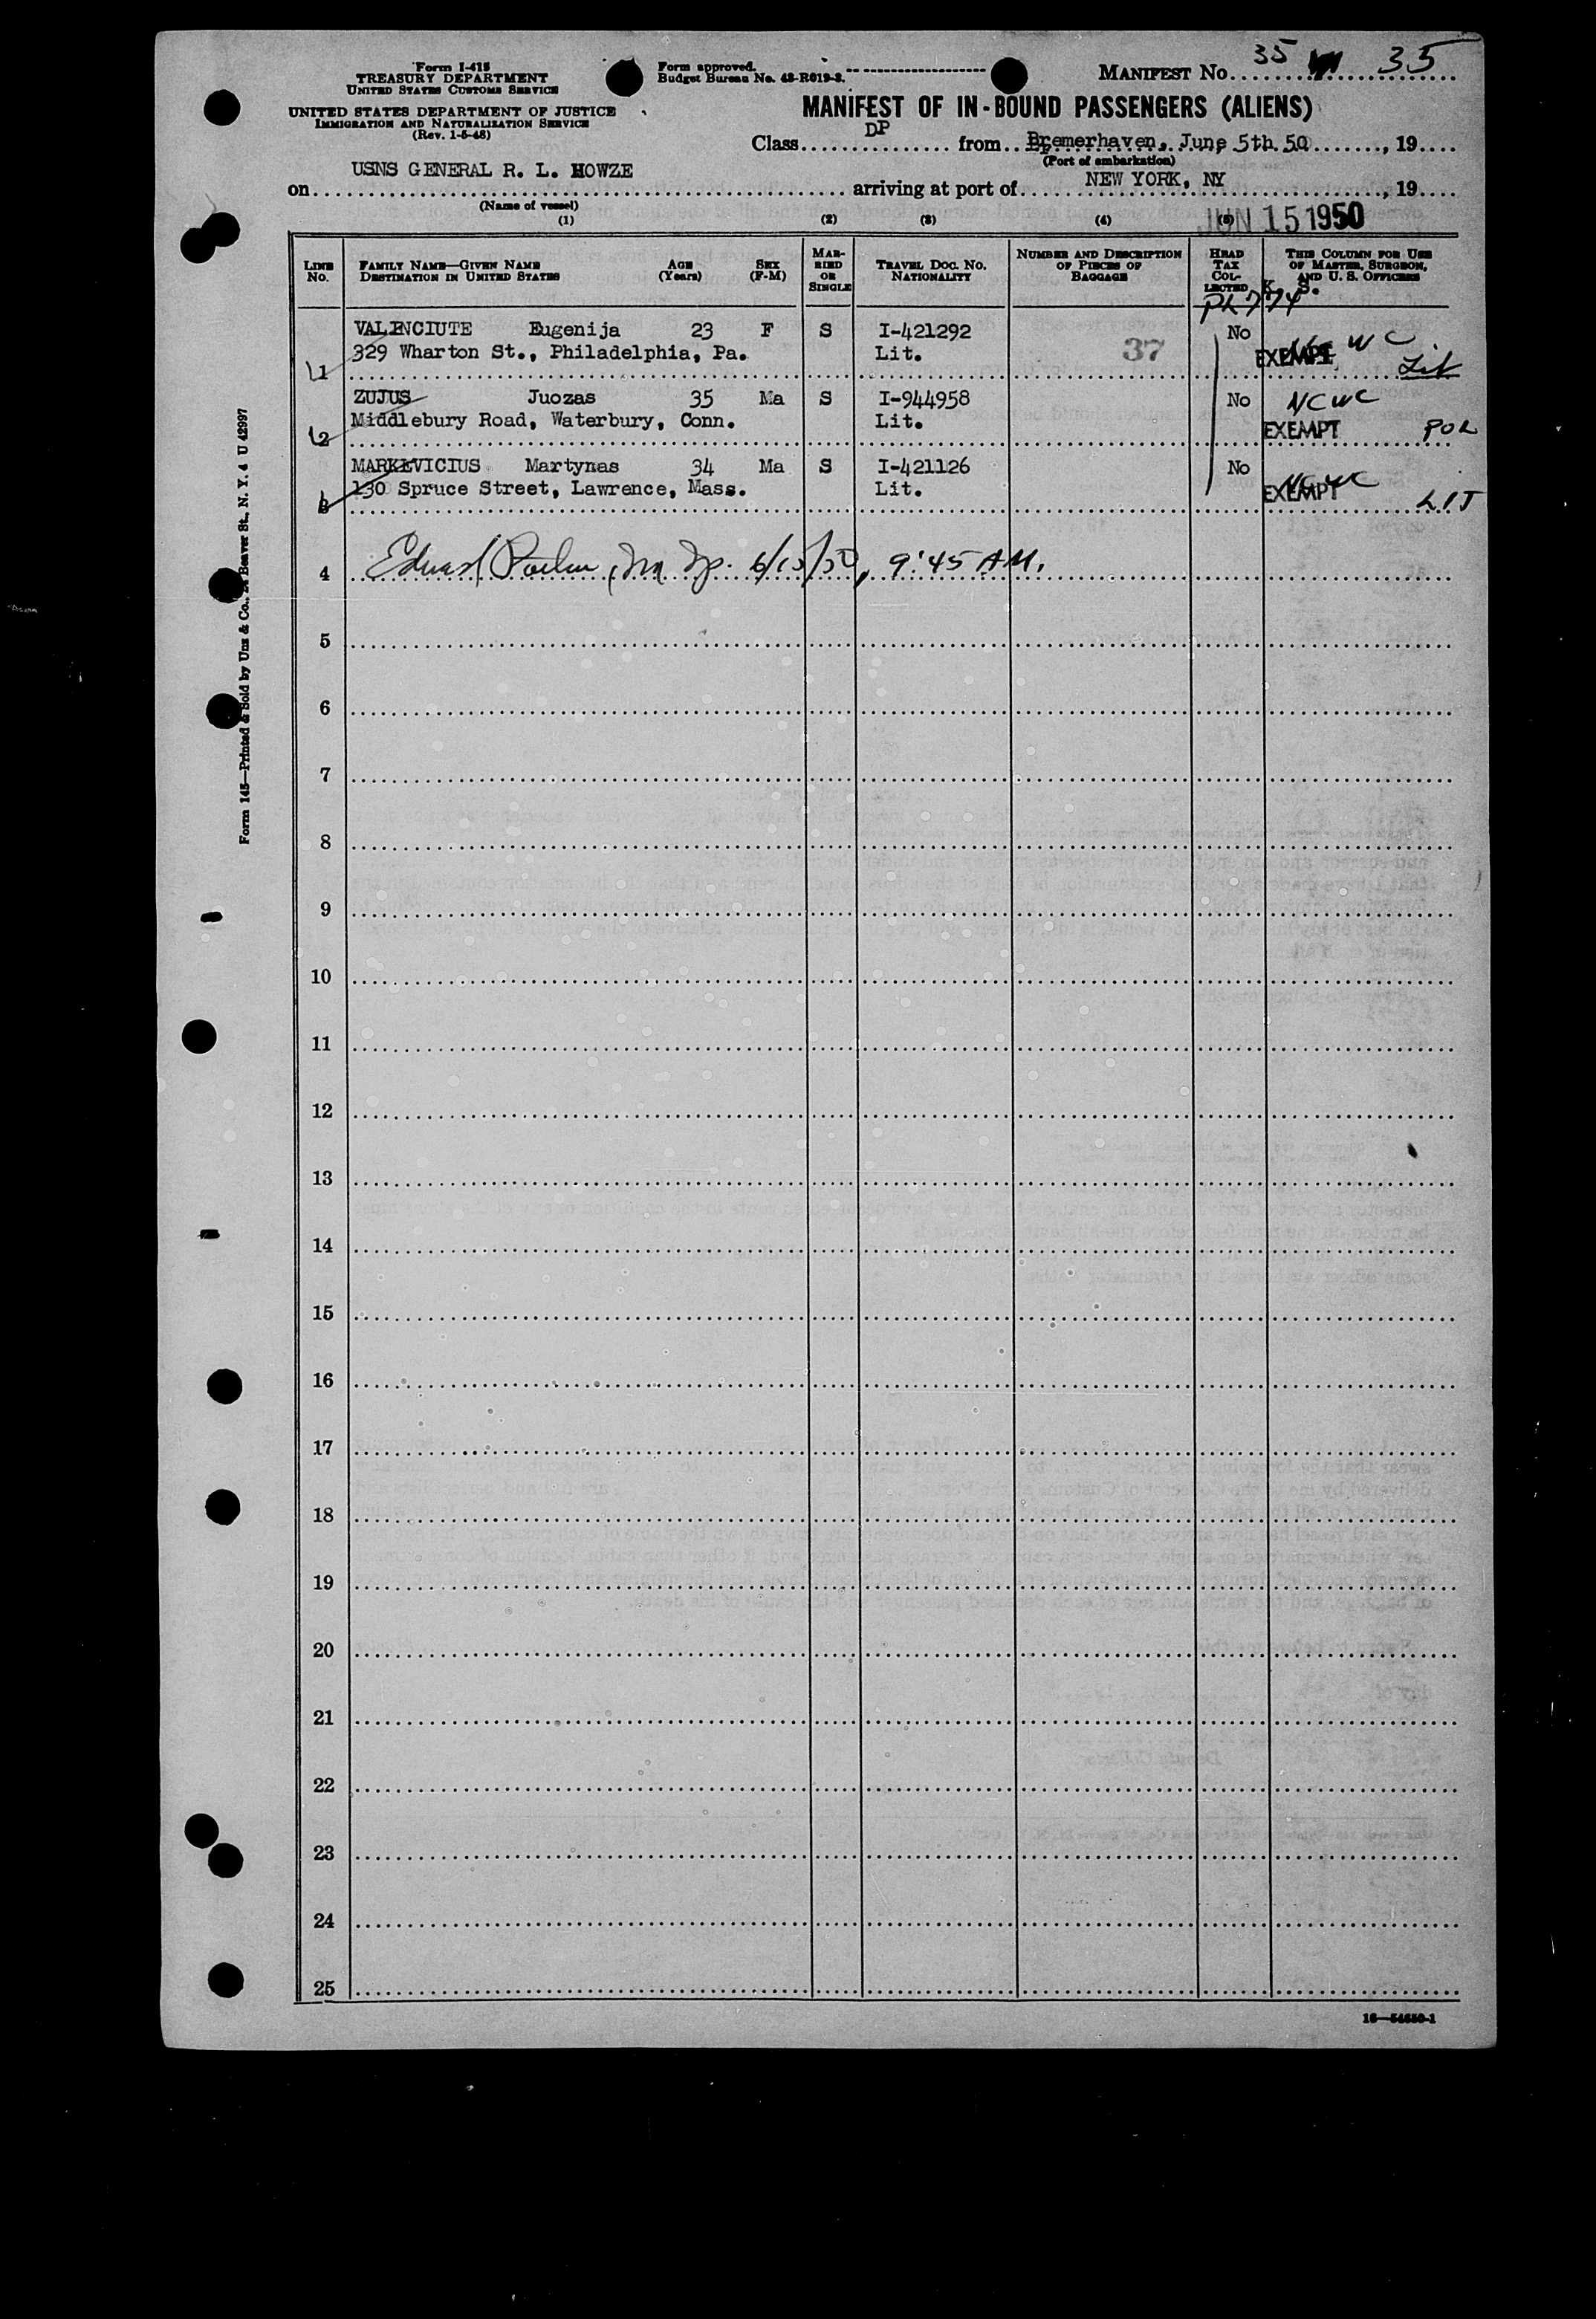 Form I-415
TREASURY DEPARTMENT
UNITED STATES CUSTOMS SERVICE
UNITED STATES DEPARTMENT OF JUSTICE
IMMIGRATION AND NATURALIZATION SERVICE
(Rev. 1-5-48)
Form approved.
Budget Bureau No. 43-R019-3.
MANIFEST No. 35 35
MANIFEST OF IN-BOUND PASSENGERS (ALIENS)
Class DP from Bremerhaven, June 5th 50, 19
(Port of embarkation)
on USNS GENERAL R. L. HOWZE arriving at port of NEW YORK, NY, 19
(Name of vessel)
JUN 15 1950
(1) (2) (3) (4) (5)
LINE No. FAMILY NAME—GIVEN NAME DESTINATION IN UNITED STATES AGE (Years) SEX (F-M) MARRIED OR SINGLE TRAVEL DOC. NO. NATIONALITY NUMBER AND DESCRIPTION OF PIECES OF BAGGAGE HEAD TAX COLLECTED THIS COLUMN FOR USE OF MASTER, SURGEON, AND U. S. OFFICERS
K. S.
PL 774
VALENCIUTE Eugenija 23 F S I-421292 No NCWC
1 329 Wharton St., Philadelphia, Pa. Lit. 37 EXEMPT Lit
ZUJUS Juozas 35 Ma S I-944958 No NCWC
2 Middlebury Road, Waterbury, Conn. Lit. EXEMPT POL
MARKEVICIUS Martynas 34 Ma S I-421126 No NCWC
3 130 Spruce Street, Lawrence, Mass. Lit. EXEMPT LIT
4 6/15/50, 9:45 AM.
5
6
7
8
9
10
11
12
13
14
15
16
17
18
19
20
21
22
23
24
25
Form 145—Printed & Sold by Unz & Co., Beaver St., N. Y. 4 U 42997
16—54650-1